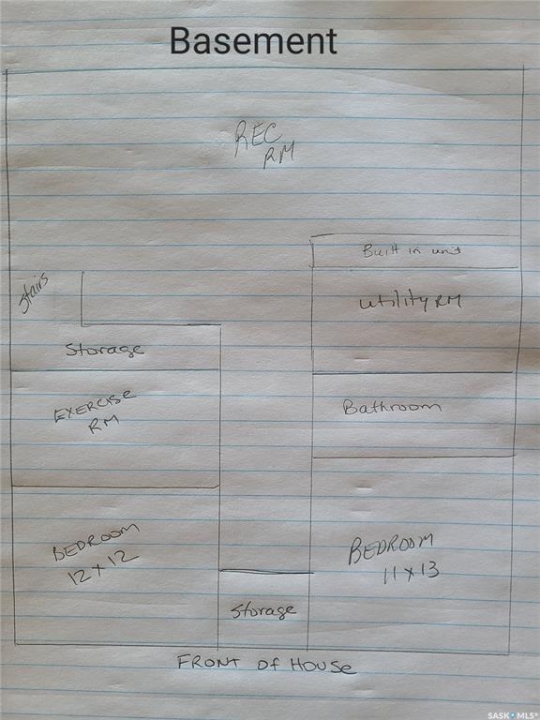 Basement
REC
RM
Built in unit
Stairs
Utility RM
Storage
EXERCISE
RM
Bathroom
BEDROOM
12 x 12
BEDROOM
11 x 13
Storage
FRONT OF HOUSE
SASK MLS®